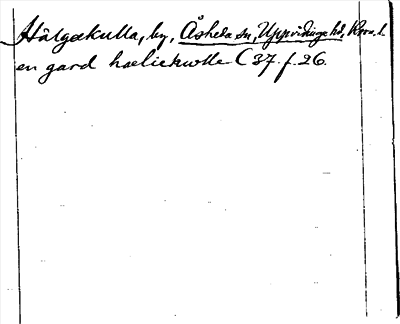 Hälgakulla, by, Åsheda sn, Uppvidinge hd, Kron. l.
en gard haeliekulle C 37. f. 26.